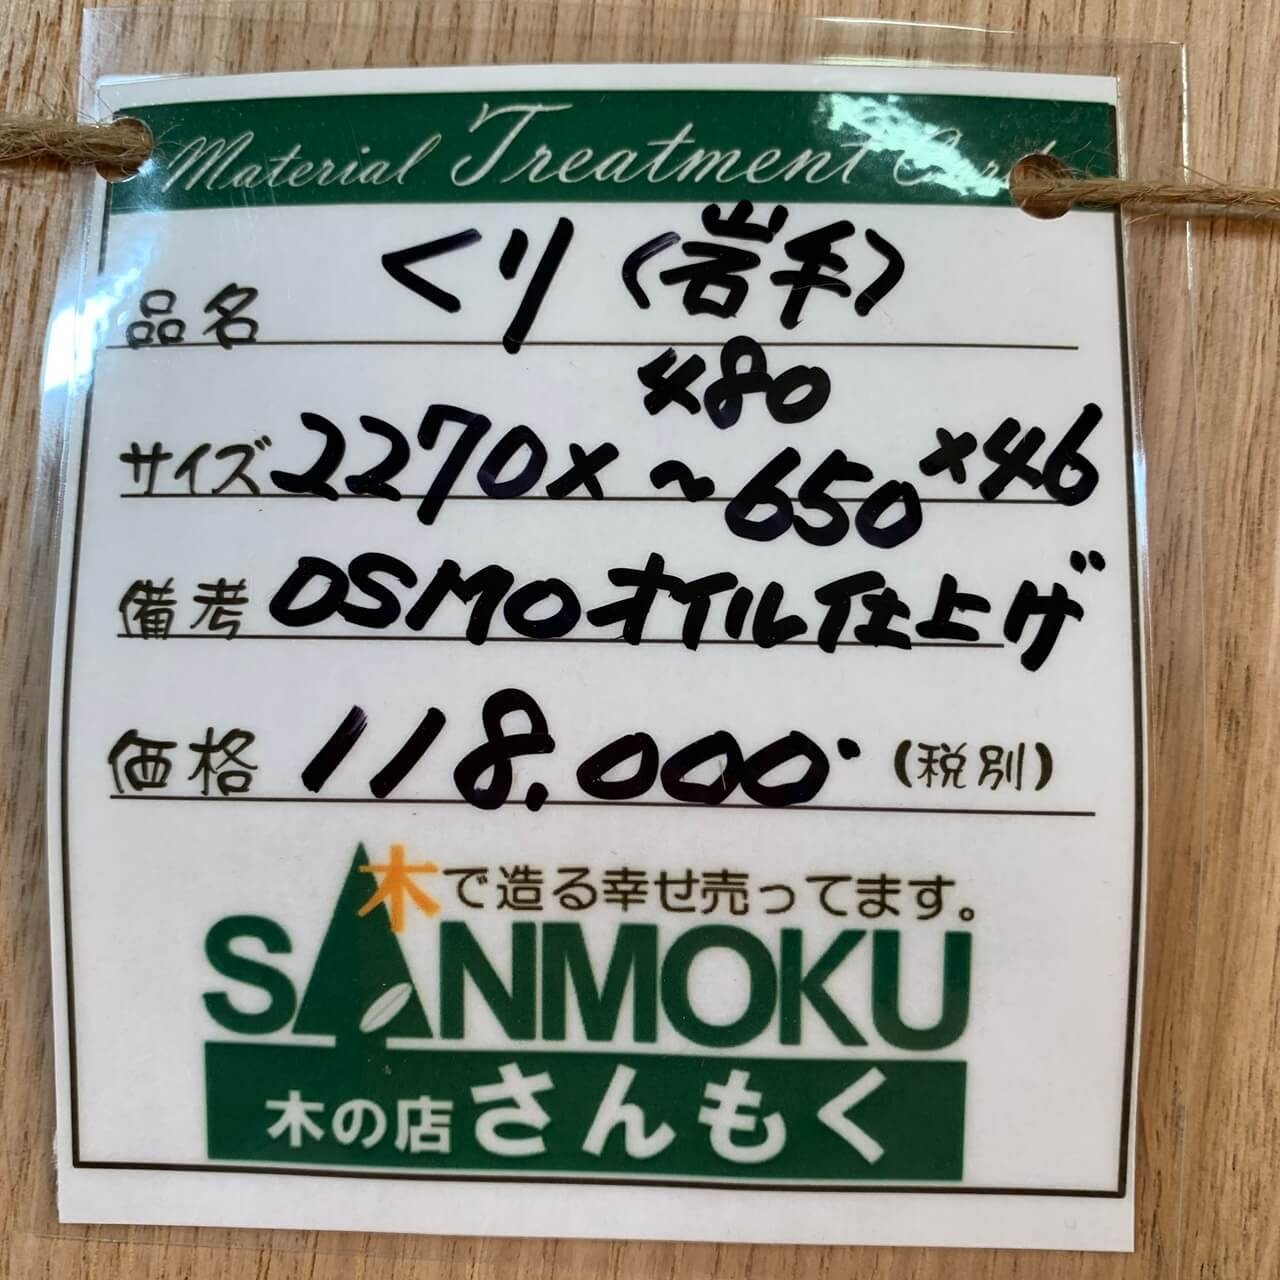 Material Treatment Card
品名 くり(岩手)
480
サイズ 2270× ~650 ×46
備考 OSMOオイル仕上げ
価格 118.000 (税別)
木で造る幸せ売ってます。
SANMOKU
木の店 さんもく